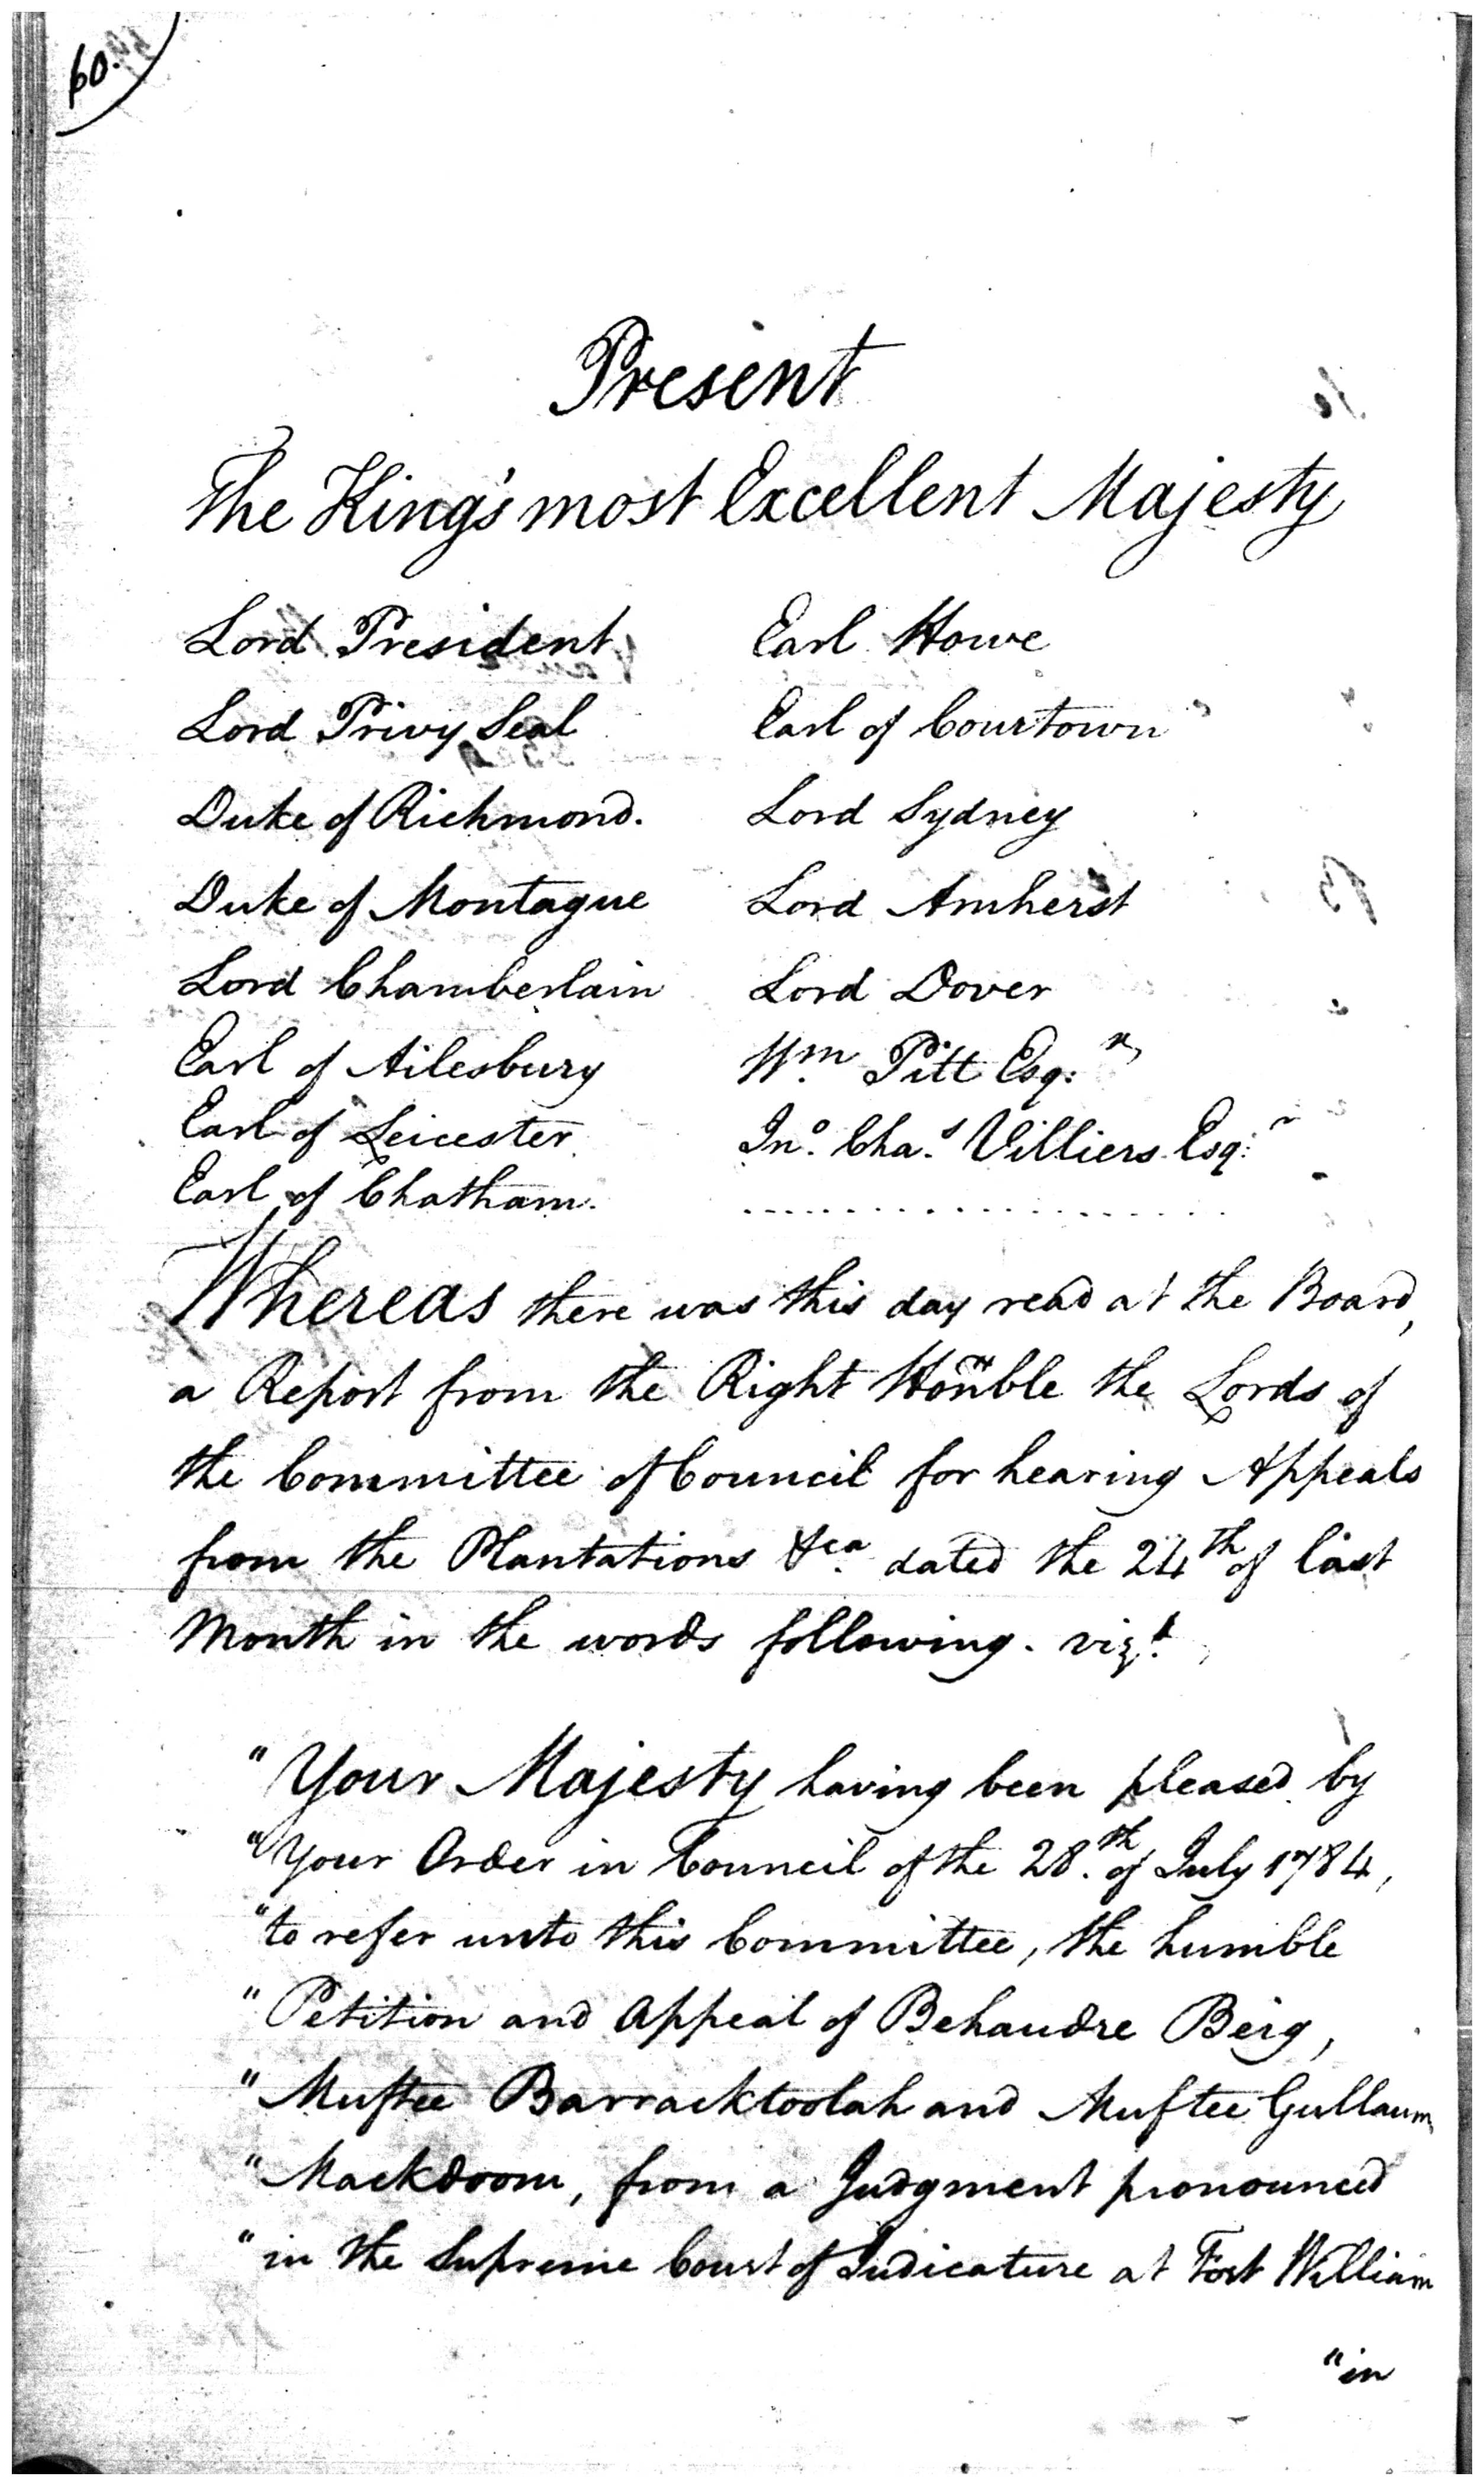 60.
Present
The King's most Excellent Majesty
Lord President
Lord Privy Seal
Duke of Richmond.
Duke of Montague
Lord Chamberlain
Earl of Ailesbury
Earl of Leicester
Earl of Chatham.
Earl Howe
Earl of Courtown
Lord Sydney
Lord Amherst
Lord Dover
Wm. Pitt Esq:r
Jno. Chas. Villiers Esq:r
Whereas there was this day read at the Board,
a Report from the Right Honble the Lords of
the Committee of Council for hearing Appeals
from the Plantations &ca. dated the 24th of last
Month in the words following. vizt.
"Your Majesty having been pleased by
"Your Order in Council of the 28.th of July 1784,
"to refer unto this Committee, the humble
"Petition and Appeal of Behaudre Beig,
"Muftee Barracktoolah and Muftee Gullaum
"Mackdoom, from a Judgment pronounced
"in the Supreme Court of Judicature at Fort William
"in